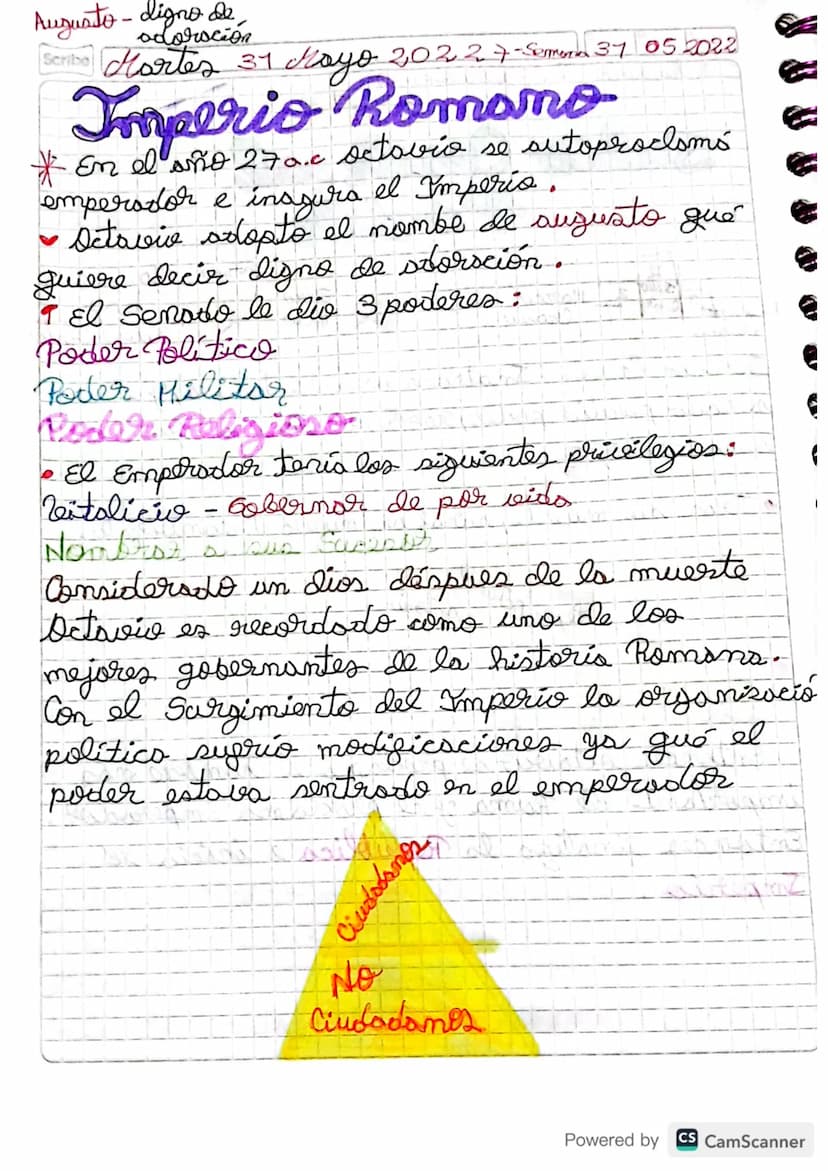 Augusto - digno de
adoración
Scribe Martes 31 Mayo 2022 7-Semana 31 05 2022
Imperio Romano
* En el año 27a.c octavio se autoproclamó
emperador e inagura el Imperio.
Octavio adopto el nombe de augusto qué
quiere decir digno de adoración.
El Senado le dio 3 poderes:
Poder Político
Poder Militar
Poder Religioso
• El Emperador tenía los siguientes privilegios:
Vitalicio - Gobernar de por vida
Nombrar a sus Sucesor
Considerado un dios déspues de la muerte
Octavio es recordado como uno de los
mejores gobernantes de la historia Romana.
Con el Surgimiento del Imperio la organizació
política sufrio modificaciones ya qué el
poder estava sentrado en el emperador
Ciudadanos
No
Ciudadanos
Powered by CS CamScanner